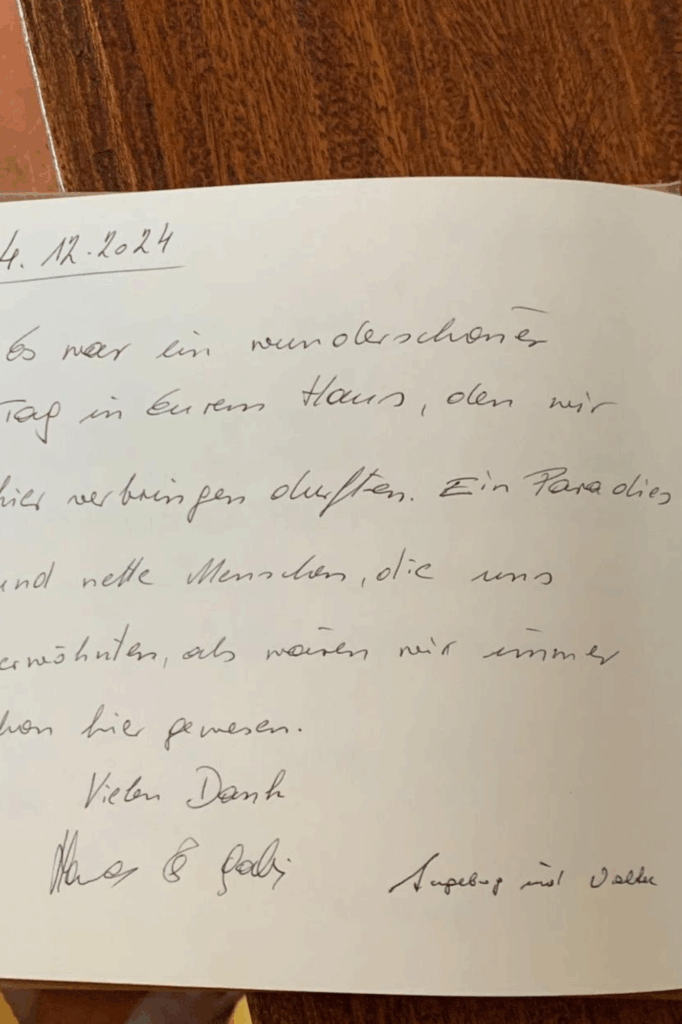 4. 12. 2024
Es war ein wunderschöner
Tag in Eurem Haus, den wir
hier verbringen durften. Ein Paradies
und nette Menschen, die uns
erwöhnten, als wären wir immer
hon hier gewesen.
Vielen Dank
& Gabi
und